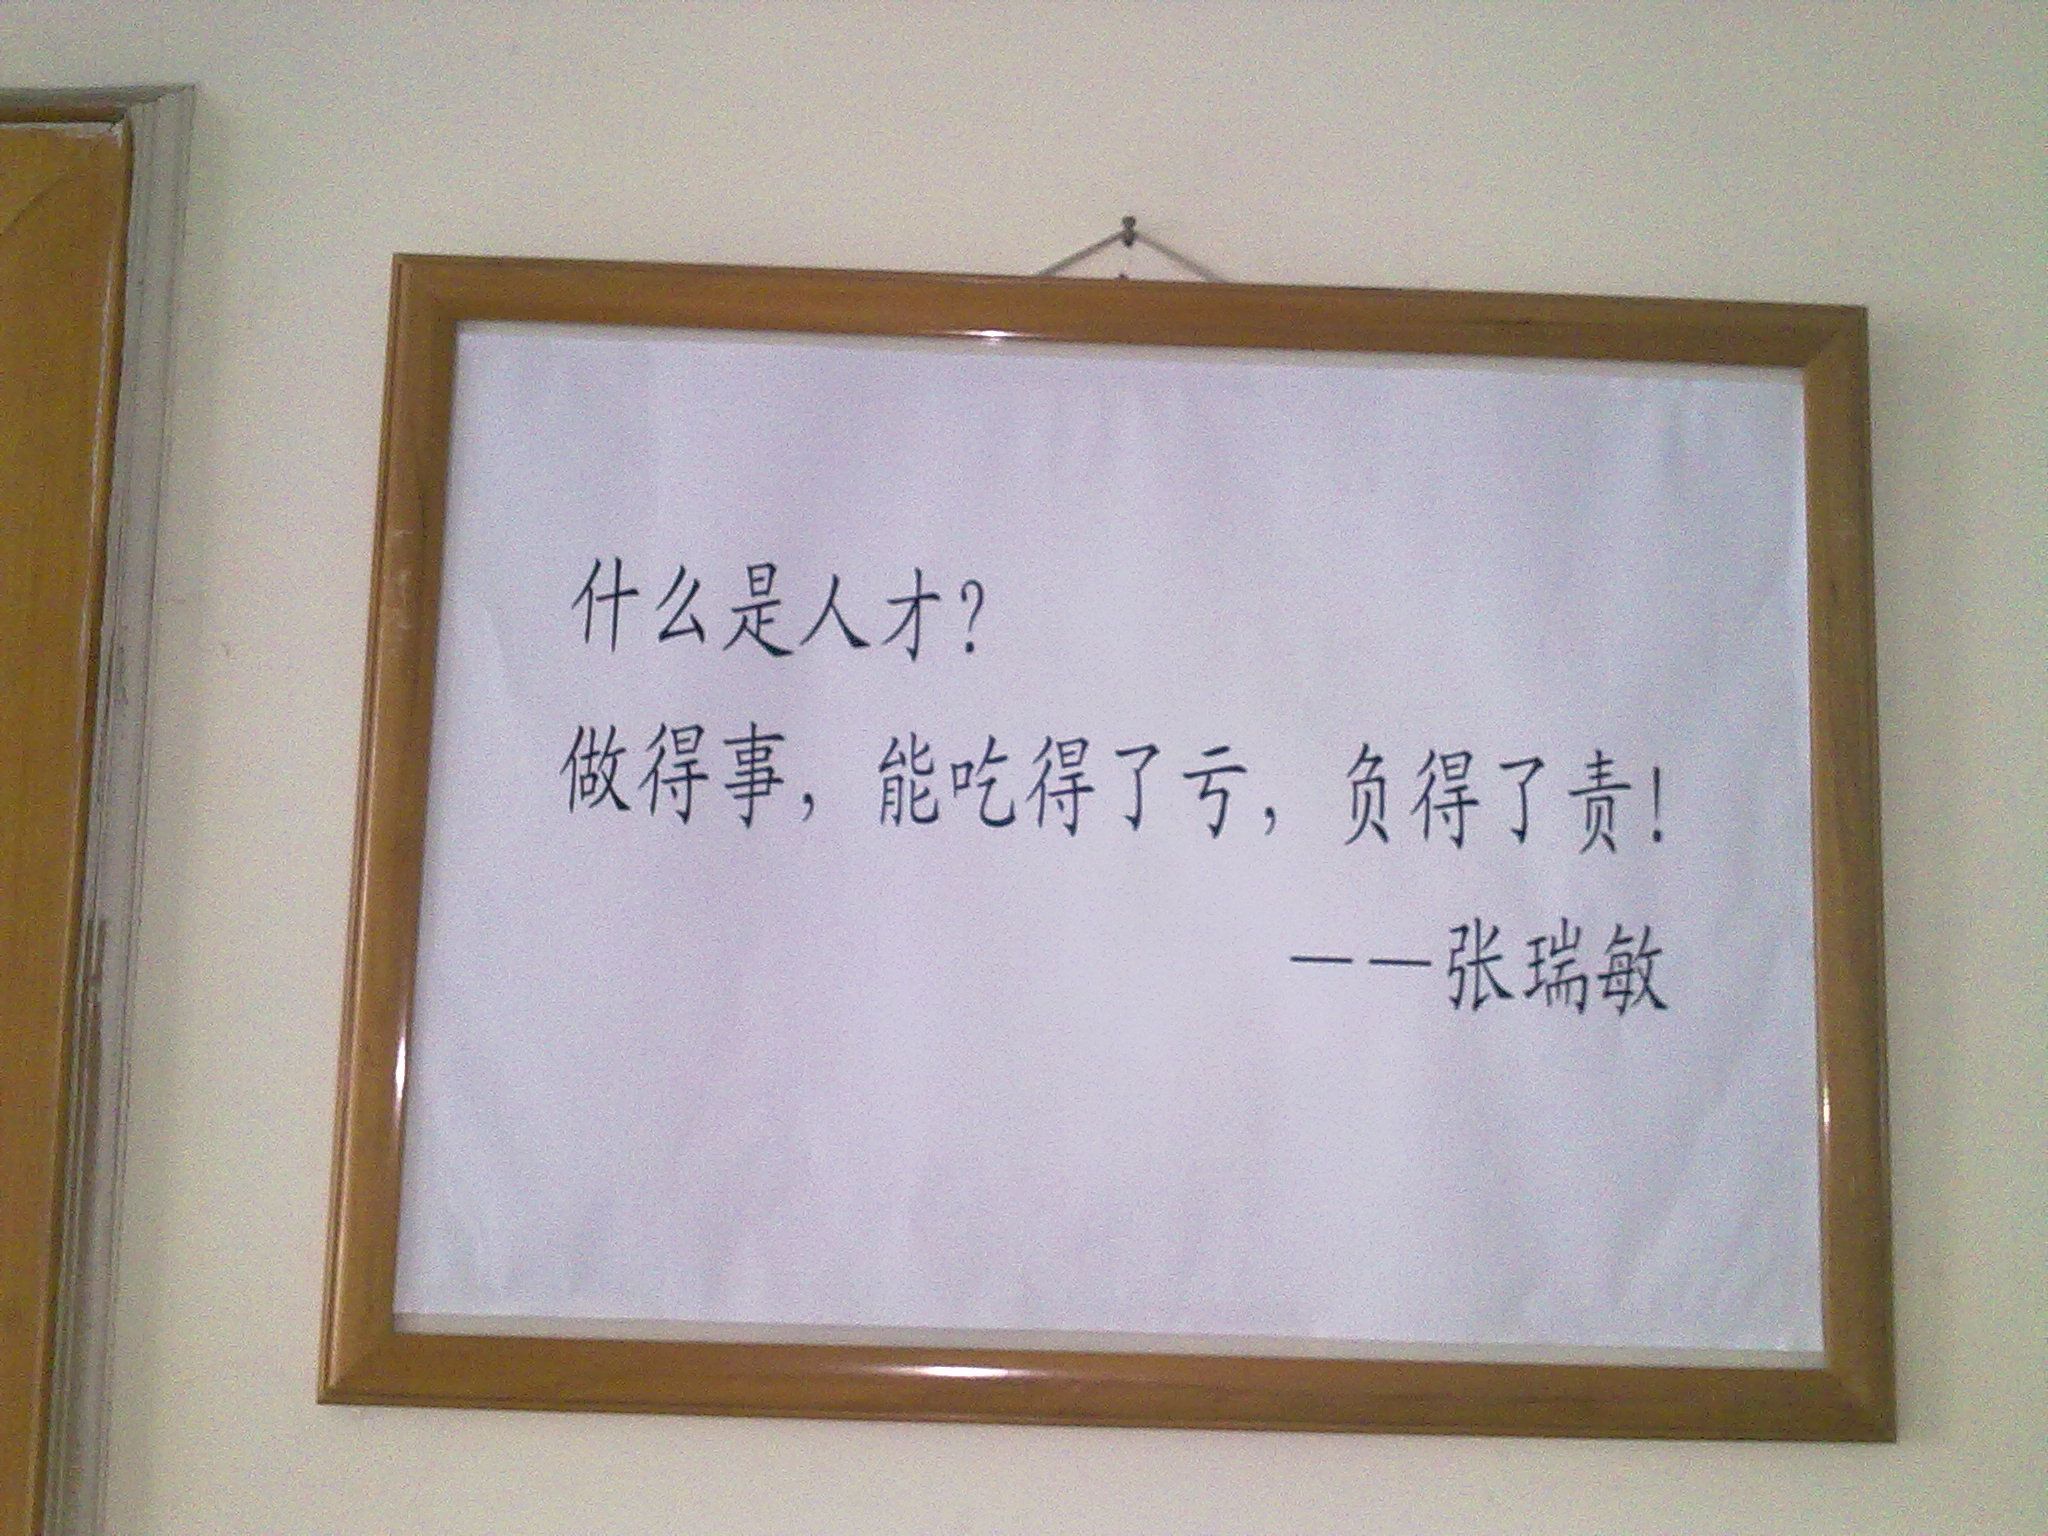 什么是人才?
做得事，能吃得了亏，负得了责!
——张瑞敏